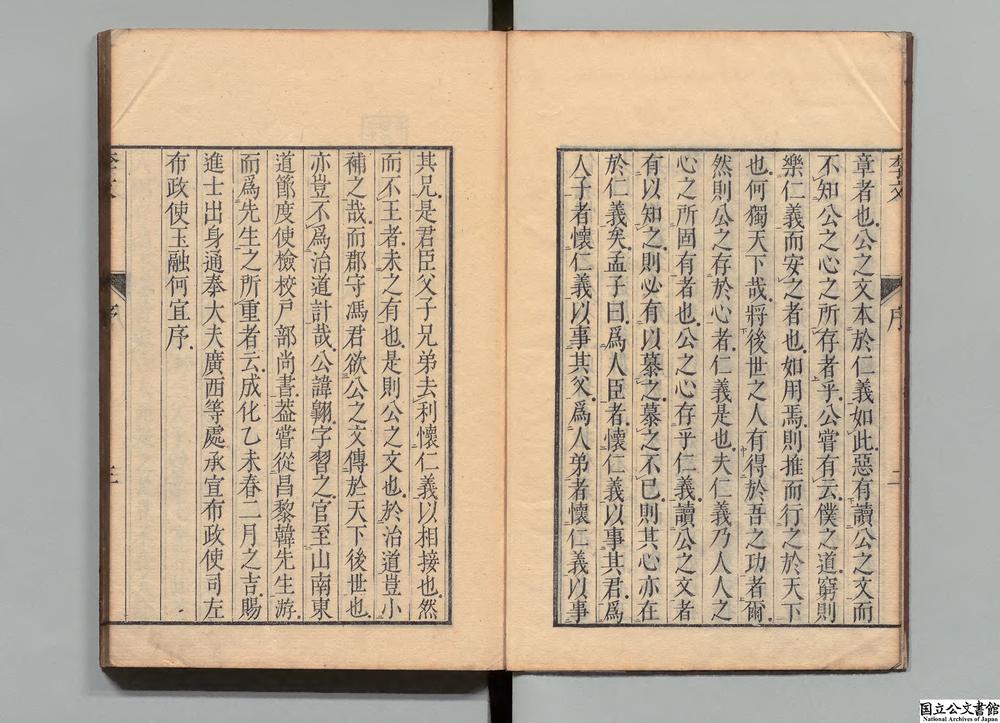 章者也公之文本於仁義如此惡有讀公之文而
不知公之心之所存者乎公嘗有云僕之道窮則
樂仁義而安之者也如用焉則推而行之於天下
也何獨天下哉將後世之人有得於吾之功者爾
然則公之存於心者仁義是也夫仁義乃人人之
心之所固有者也公之心存乎仁義讀公之文者
有以知之則必有以慕之慕之不已則其心亦在
於仁義矣孟子曰爲人臣者懷仁義以事其君爲
人子者懷仁義以事其父爲人弟者懷仁義以事
李文 序 二
其兄是君臣父子兄弟去利懷仁義以相接也然
而不王者未之有也是則公之文也於治道豈小
補之哉而郡守馮君欲公之文傳於天下後世也
亦豈不爲治道計哉公諱翺字習之官至山南東
道節度使檢校戸部尚書葢嘗從昌黎韓先生游
而爲先生之所重者云成化乙未春二月之吉賜
進士出身通奉大夫廣西等處承宣布政使司左
布政使玉融何宜序
李文 序 三
国立公文書館
National Archives of Japan